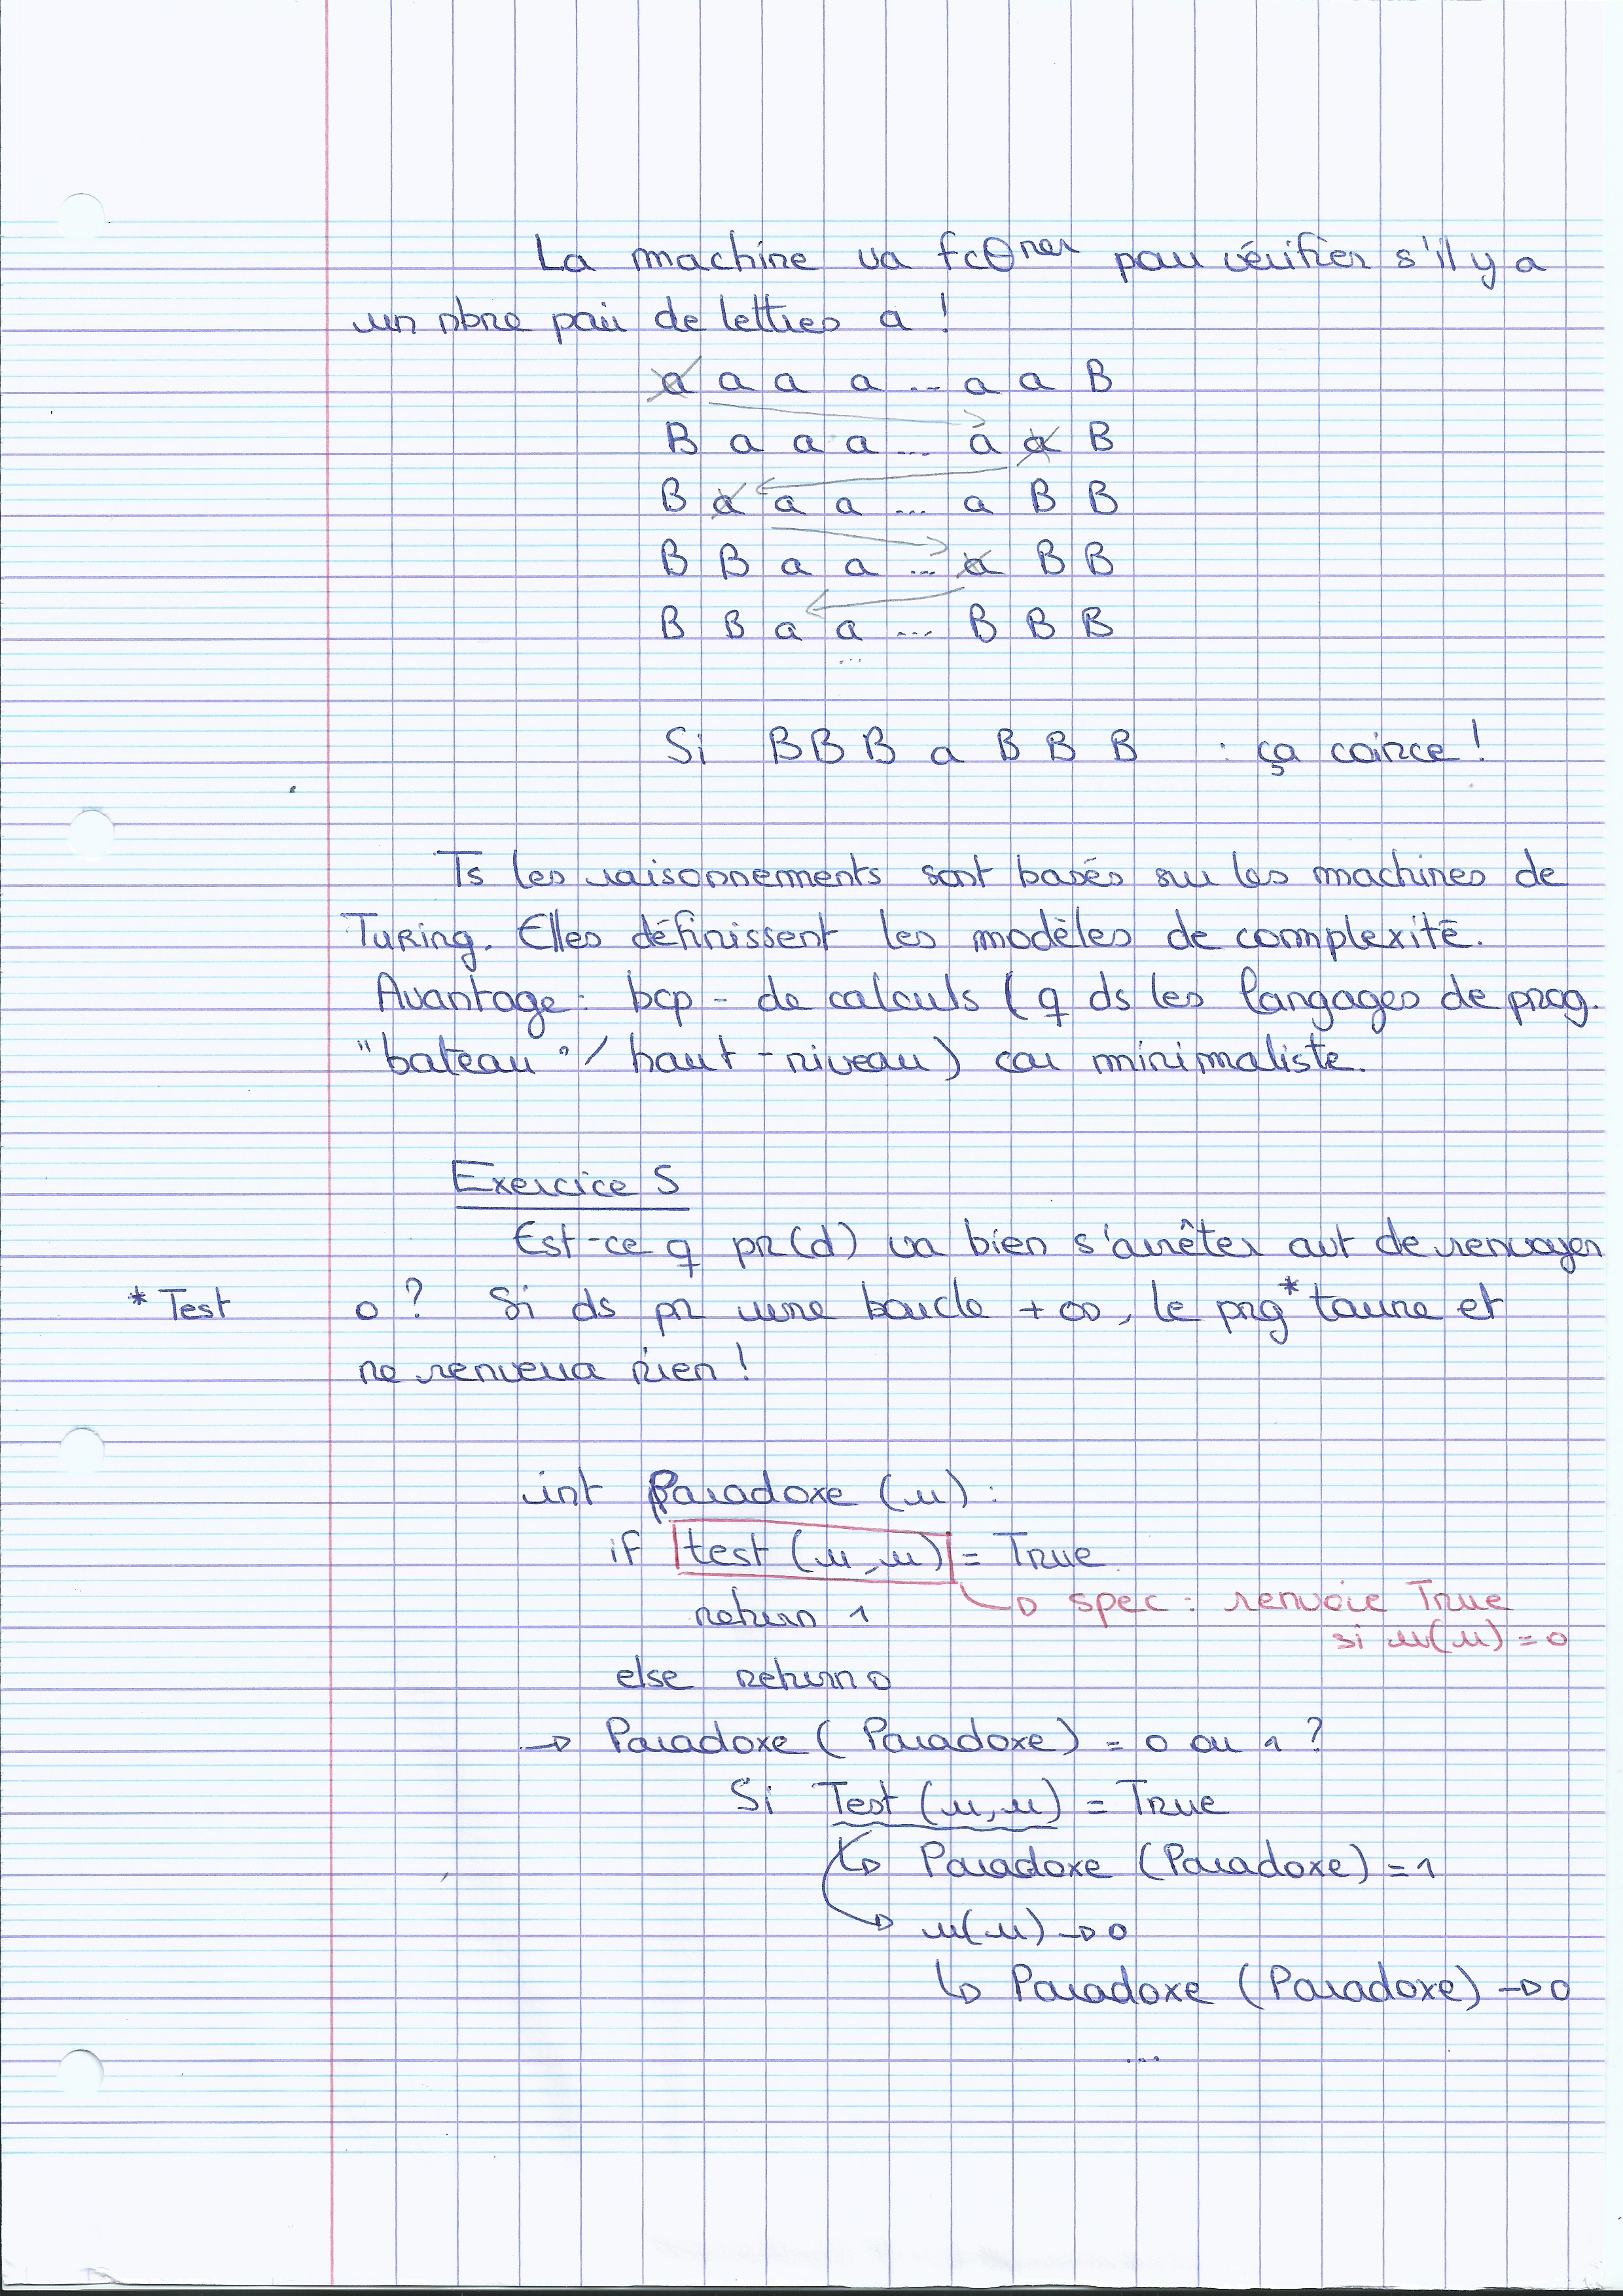 La machine va fcθner pour vérifier s'il y a
un nbre pair de lettres a !
a a a a ... a a B
B a a a ... a a B
B a a a ... a B B
B B a a ... a B B
B B a a ... B B B
...
Si B B B a B B B : ça coince !
Ts les raisonnements sont basés sur les machines de
Turing. Elles définissent les modèles de complexité.
Avantage : bcp - de calculs (q ds les langages de prog.
"bateau" / haut-niveau) car minimaliste.
Exercice 5
Est-ce q pr(d) va bien s'arrêter avt de renvoyer
* Test 0 ? Si ds pr une boucle +∞, le prg* tourne et
ne renverra rien !
int Paradoxe (u) :
if test (u,u) = True
↳ spec : renvoie True
return 1
si u(u) = 0
else return 0
→ Paradoxe ( Paradoxe ) = 0 ou 1 ?
Si Test (u,u) = True
↳ Paradoxe (Paradoxe) = 1
→ u(u) → 0
↳ Paradoxe (Paradoxe) → 0
...